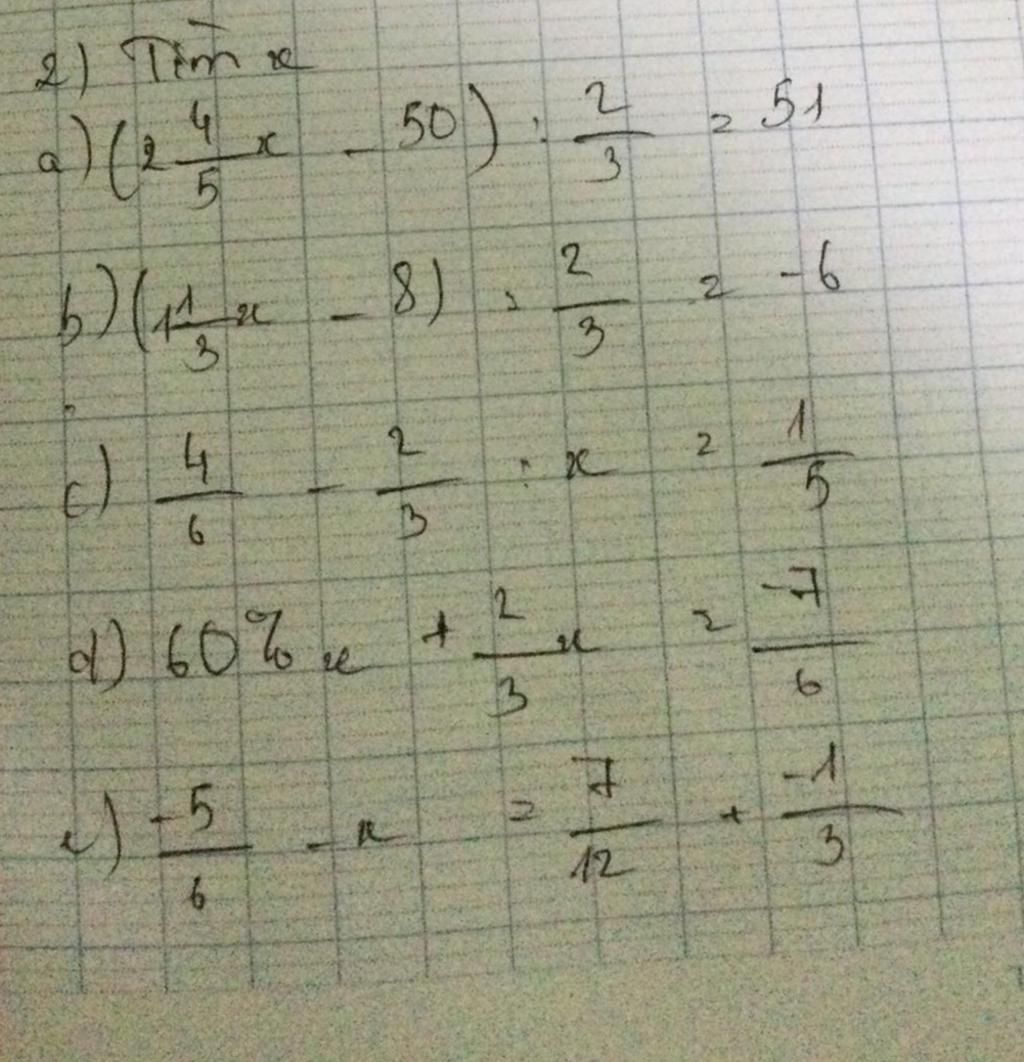 2) Tìm x
a) (2 4/5 x - 50) : 2/3 = 51
b) (1 1/3 x - 8) : 2/3 = -6
c) 4/6 - 2/3 : x = 1/5
d) 60% x + 2/3 x = -7/6
e) -5/6 - x = 7/12 + -1/3